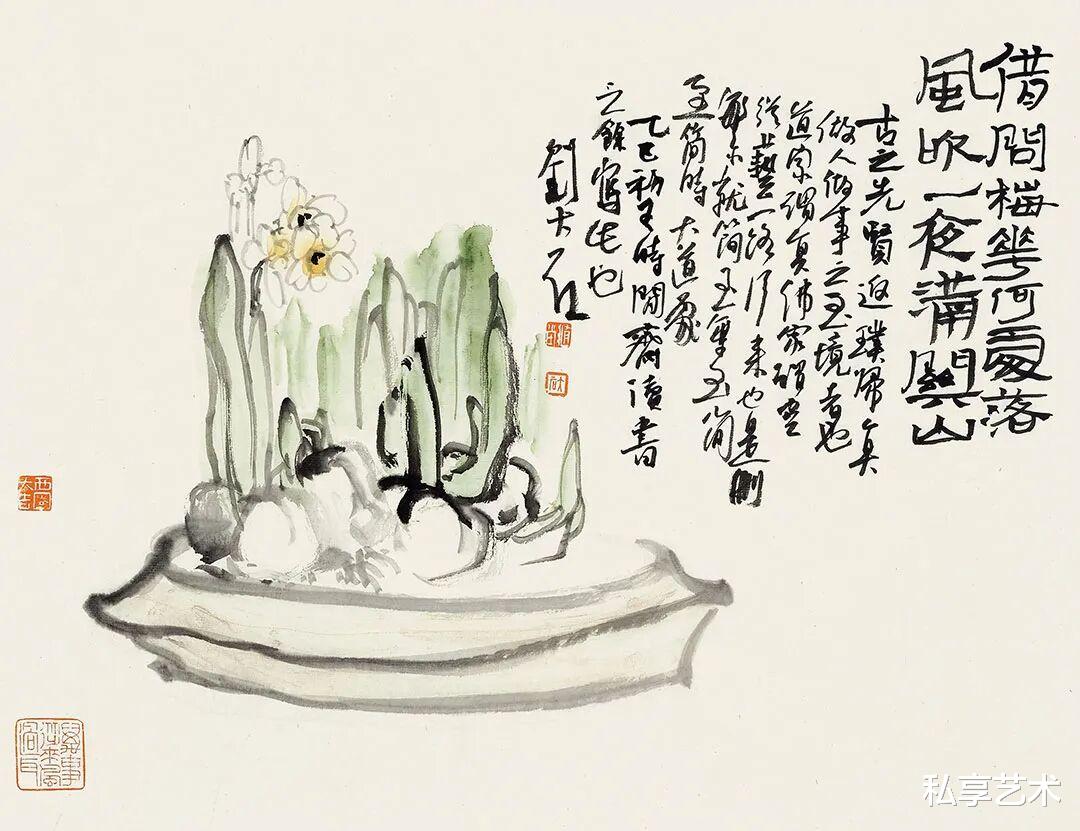 借問梅花何處落
風吹一夜滿關山
古之先賢返璞歸真
做人做事之至境者也
道家謂真佛家謂空
從藝一路行來也是刪
繁就簡至簡
至簡時大道象
乙巳初夏時閒齋讀書
之餘寫此也
劉大石
私享艺术